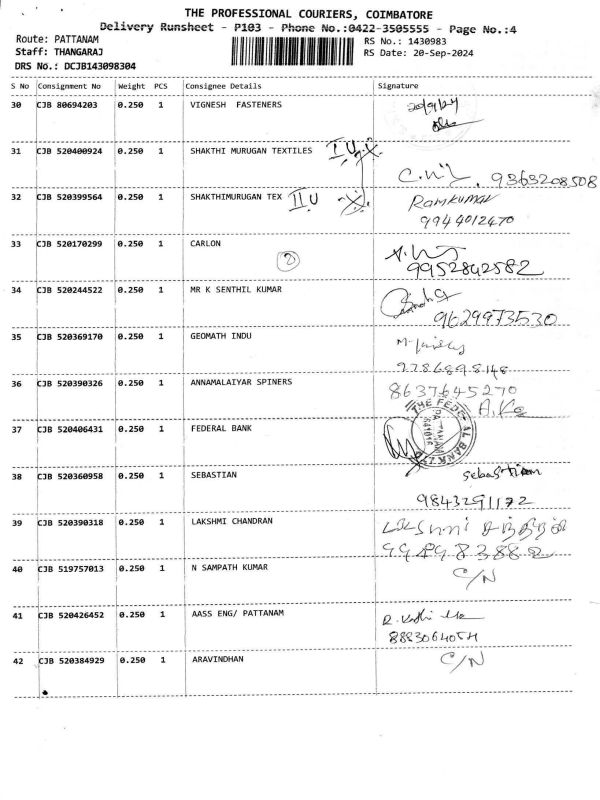 THE PROFESSIONAL COURIERS, COIMBATORE
Delivery Runsheet - P103 - Phone No.:0422-3505555 - Page No.:4
Route: PATTANAM
RS No.: 1430983
Staff: THANGARAJ
RS Date: 20-Sep-2024
DRS No.: DCJB143098304
S No Consignment No Weight PCS Consignee Details Signature
30 CJB 80694203 0.250 1 VIGNESH FASTENERS 20/9/24
31 CJB 520400924 0.250 1 SHAKTHI MURUGAN TEXTILES I U
9363208508
32 CJB 520399564 0.250 1 SHAKTHIMURUGAN TEX II U Ramkumar
9944012470
33 CJB 520170299 0.250 1 CARLON
2
9952842582
34 CJB 520244522 0.250 1 MR K SENTHIL KUMAR
9629973530
35 CJB 520369170 0.250 1 GEOMATH INDU
36 CJB 520390326 0.250 1 ANNAMALAIYAR SPINERS 8637645270
37 CJB 520406431 0.250 1 FEDERAL BANK
38 CJB 520360958 0.250 1 SEBASTIAN Sebastian
9843291172
39 CJB 520390318 0.250 1 LAKSHMI CHANDRAN
40 CJB 519757013 0.250 1 N SAMPATH KUMAR C/N
41 CJB 520426452 0.250 1 AASS ENG/ PATTANAM
8883064054
42 CJB 520384929 0.250 1 ARAVINDHAN C/N